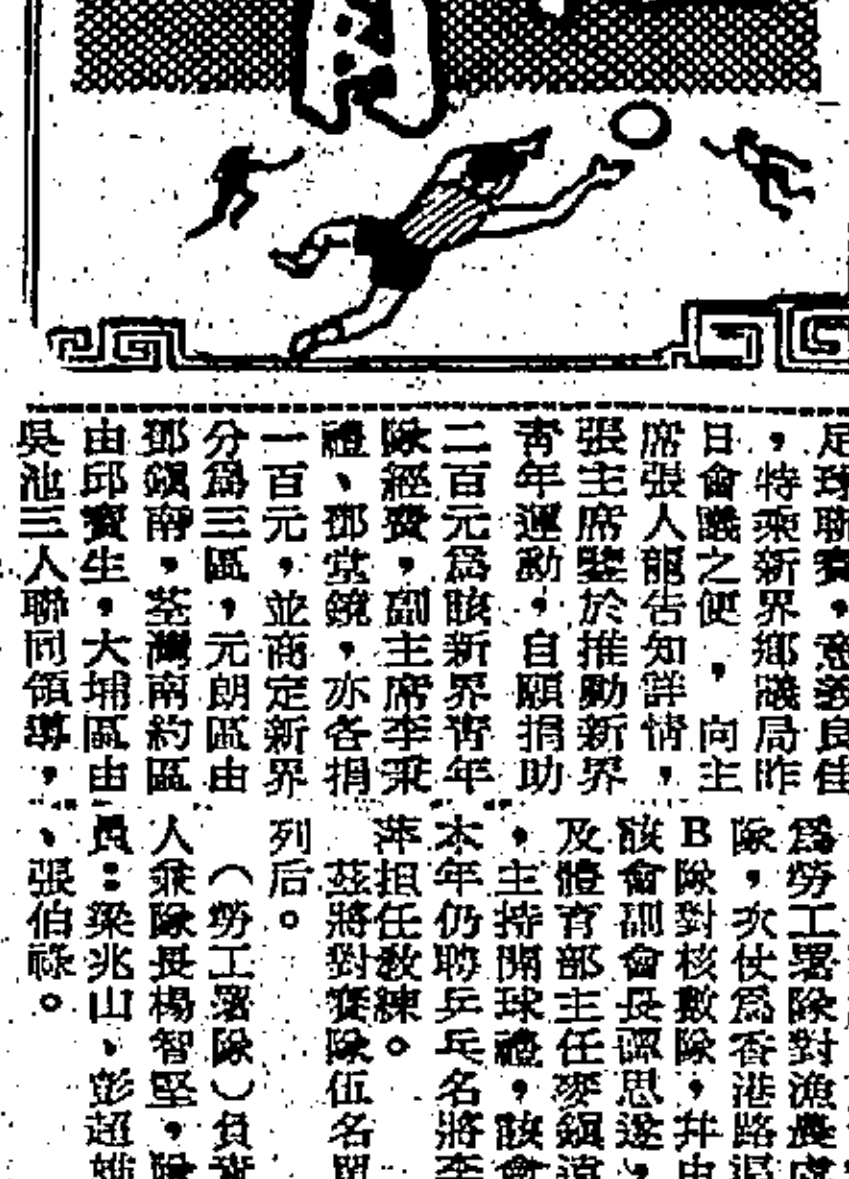 足球聯賽，意義良佳
，特乘新界鄉議局昨
日會議之便，向主
席張人龍告知詳情，
張主席鑒於推動新界
青年運動，自願捐助
二百元爲該新界青年
隊經費，副主席李乘
禮、鄧堂鏡，亦各捐
一百元，並商定新界
分爲三區，元朗區由
鄧鎮南，荃灣南約區
由邱寶生，大埔區由
吳池三人聯同領導，
爲勞工署隊對漁農處
隊，次仗爲香港路區
B隊對核數隊，幷由
該會副會長譚思遂，
及體育部主任麥鎮
，主持開球禮，該會
本年仍聘乒乓名將李
萍担任教練。
茲將對賽隊伍名單
列后。
（勞工署隊）負責
人兼隊長楊智堅，隊
員：梁兆山、彭超雄
、張伯祿。